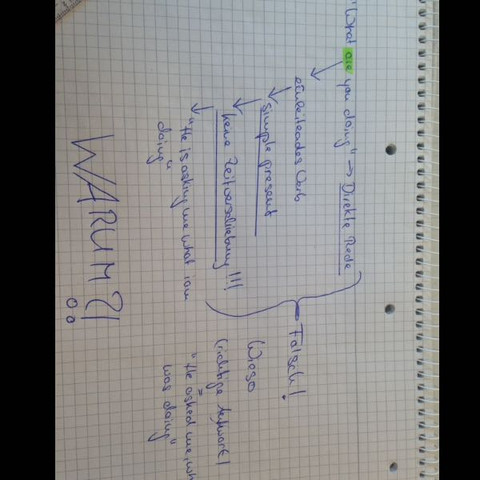 "What are you doing" → Direkte Rede
einleitendes Verb
simple present
keine Zeitverschiebung !!!
"He is asking me what i am
doing"
Falsch!
Wieso
(richtige Antwort)
"He asked me, wh
was doing"
WARUM?!